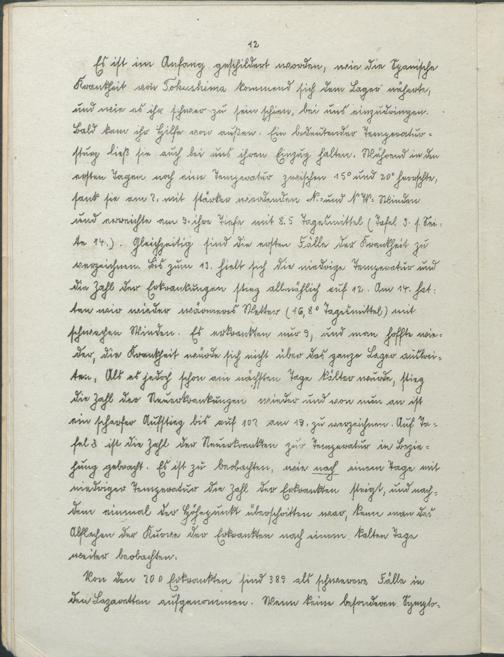 12
Es ist im Anfang geschildert worden, wie die Spanische
Krankheit von Tokushima kommend sich dem Lager näherte,
und wie es ihr schwer zu sein schien, bei uns einzudringen.
Bald kam ihr Hilfe von außen. Ein bedeutender Temperatur-
sturz ließ sie auch bei uns ihren Einzug halten. Während in den
ersten Tagen noch eine Temperatur zwischen 15° und 20° herrschte,
sank sie am 7. mit stärker werdenden N.- und N.W.- Winden
und erreichte am 9. ihre Tiefe mit 8.5 Tagesmittel (Tafel 3. s. Sei-
te 14.). Gleichzeitig sind die ersten Fälle der Krankheit zu
verzeichnen. Bis zum 13. hielt sich die niedrige Temperatur und
die Zahl der Erkrankungen stieg allmählich auf 12. Am 14. hat-
ten wir wieder wärmeres Wetter (16,8° Tagesmittel) mit
schwachen Winden. Es erkrankten nur 9, und man hoffte wie-
der, die Krankheit würde sich nicht über das ganze Lager ausbrei-
ten. Als es jedoch schon am nächsten Tage kälter wurde, stieg
die Zahl der Neuerkrankungen wieder und von nun an ist
ein scharfer Aufstieg bis auf 107 am 19. zu verzeichnen. Auf Ta-
fel 3 ist die Zahl der Neuerkrankten zur Temperatur in Bezie-
hung gebracht. Es ist zu beobachten, wie nach einem Tage mit
niedriger Temperatur die Zahl der Erkrankten steigt, und nach-
dem einmal der Höhepunkt überschritten war, kann man das
Abflachen der Kurve der Erkrankten nach einem kalten Tage
weiter beobachten.
Von den 700 Erkrankten sind 389 als schwerere Fälle in
den Lazaretten aufgenommen. Wenn keine besonderen Sympto-